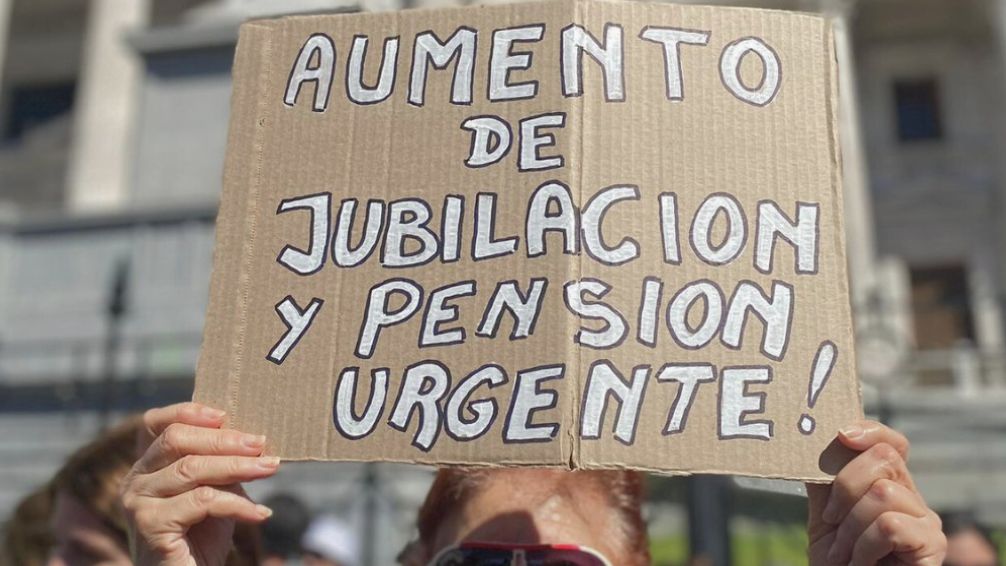 AUMENTO
DE
JUBILACION
Y PENSION
URGENTE!